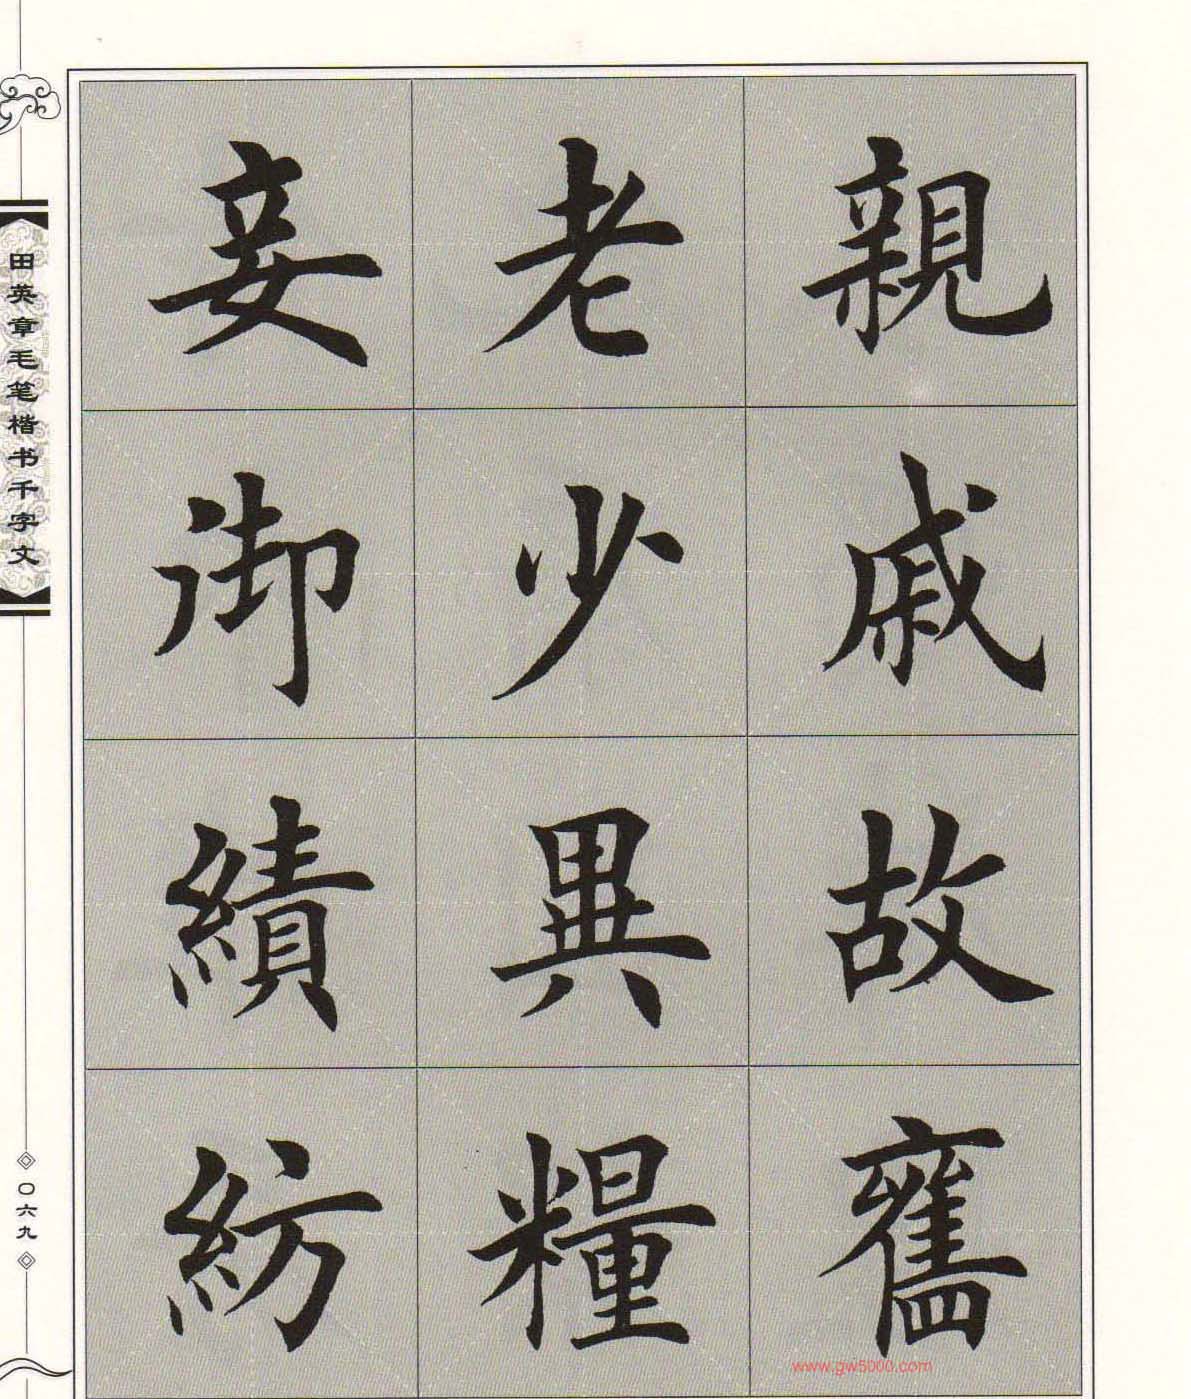 親戚故舊
老少異糧
妾御績紡
田英章毛笔楷书千字文
〇六九
www.gw5000.com